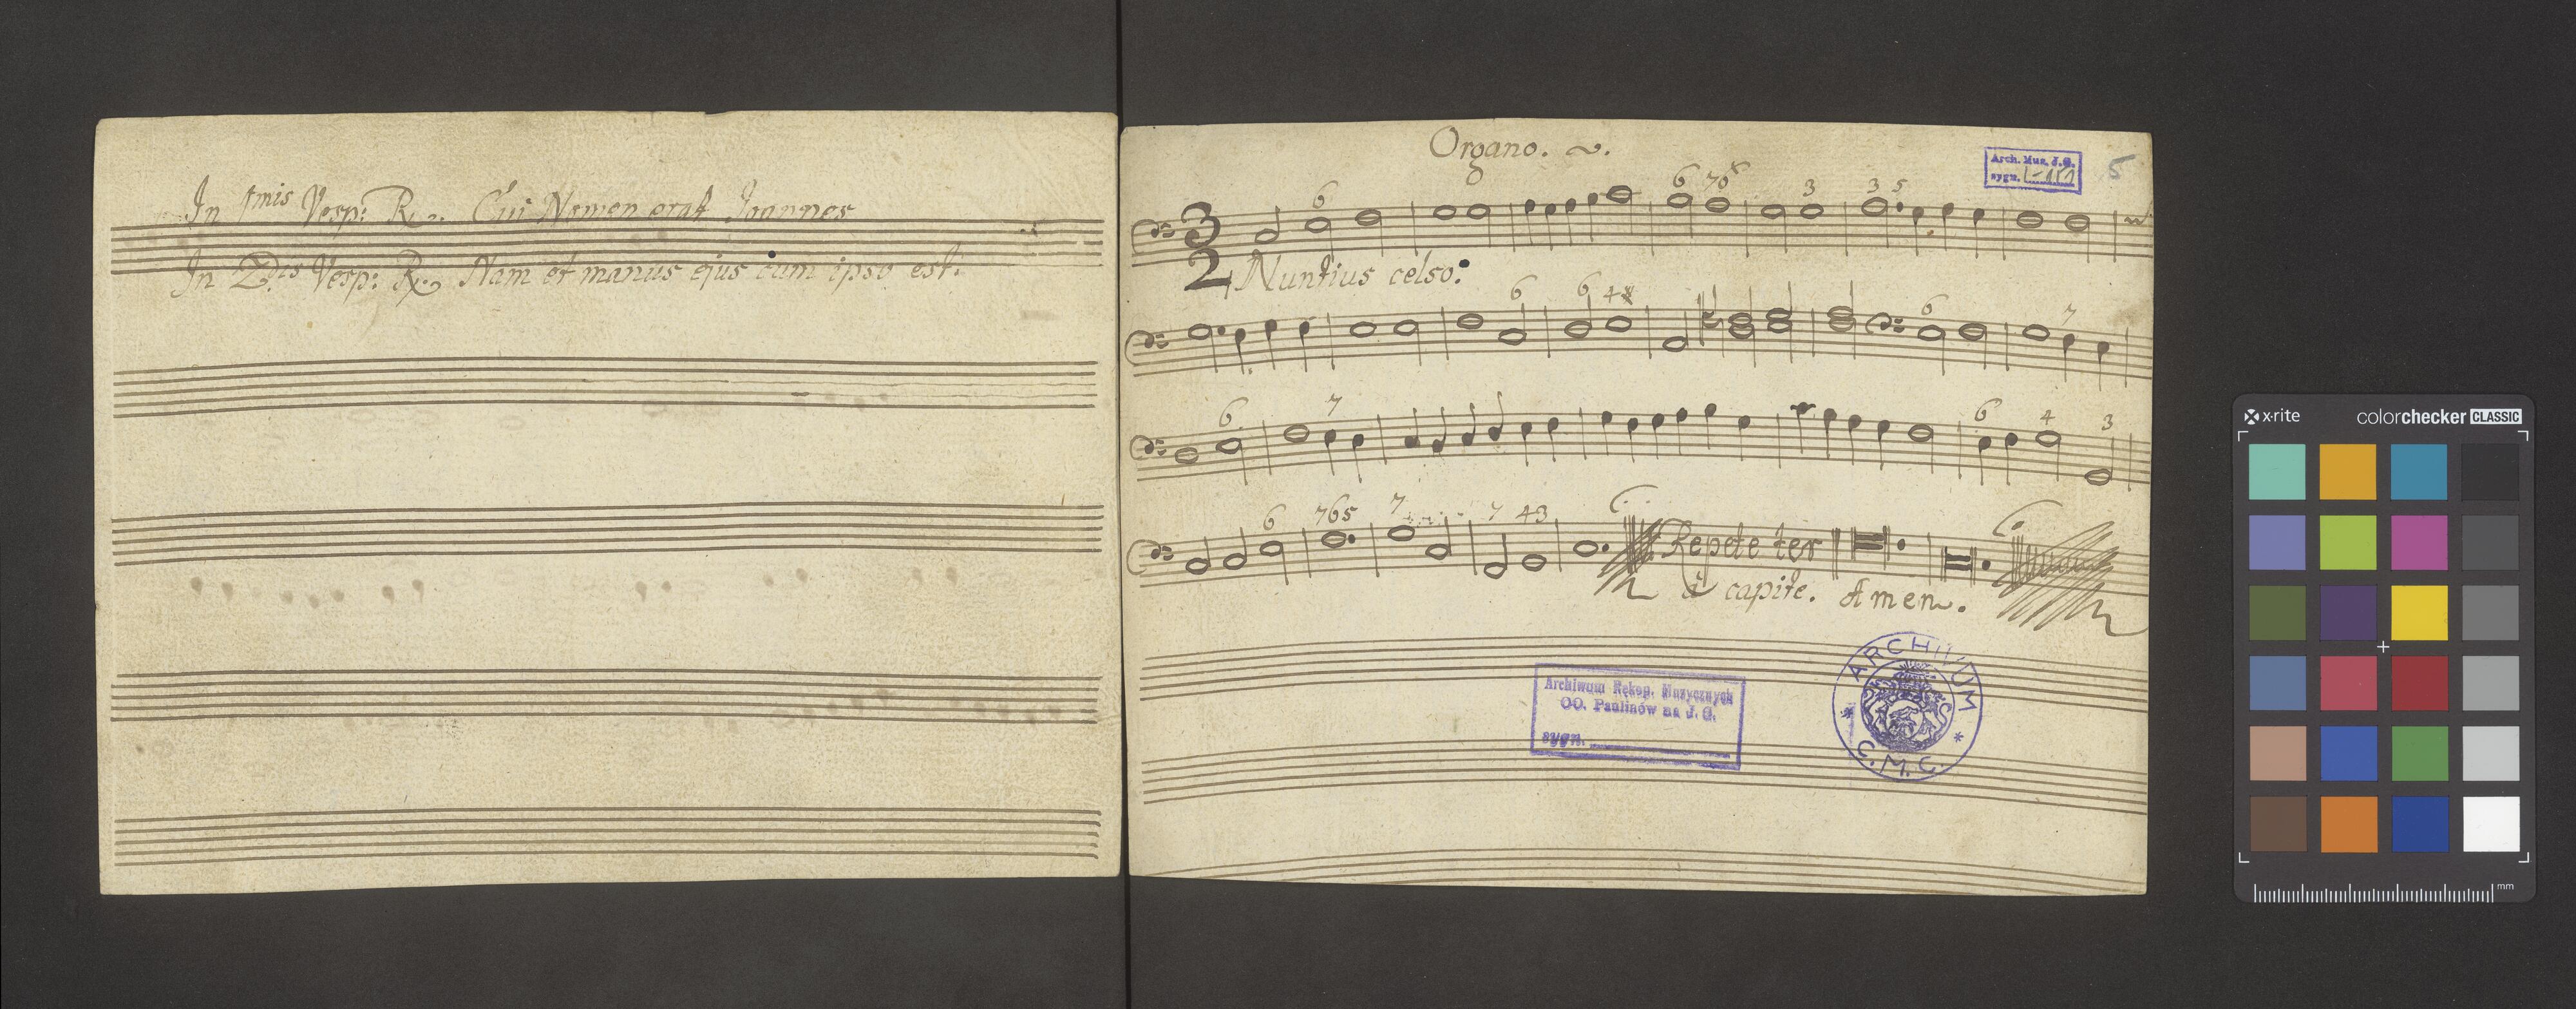 In 1mis Vesp: R. Cui Nomen erat Joannes
In 2dis Vesp: R. Nam et manus ejus cum ipso est.
Organo.
Arch. Muz. J.G.
sygn.
5
6 6 7 6 3 3 5
3
2
Nuntius celso:
6 6 4 6 7
6 7 6 4 3
6 7 6 5 7 7 4 3
Repete ter
à capite. Amen.
Archiwum Rękop. Muzycznych
OO. Paulinów na J. G.
sygn.
ARCHIVUM
C. M. C.
x-rite
colorchecker CLASSIC
mm